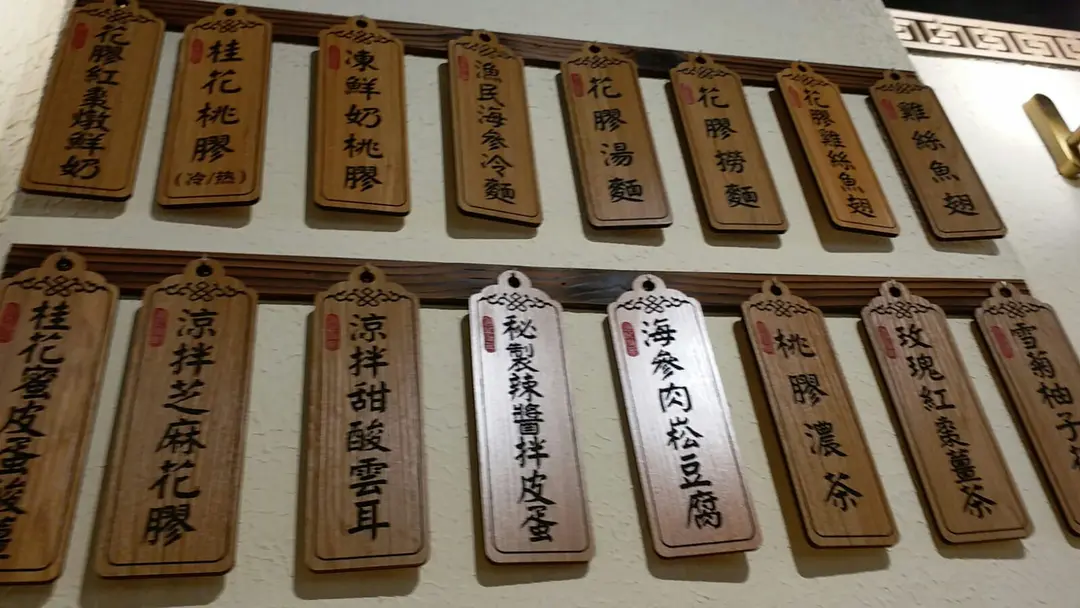 花膠紅棗燉鮮奶
桂花桃膠
(冷/热)
凍鮮奶桃膠
漁民海參冷麵
花膠湯麵
花膠撈麵
花膠雞絲魚翅
雞絲魚翅
桂花蜜皮蛋酸薑
涼拌芝麻花膠
涼拌甜酸雲耳
秘製辣醬拌皮蛋
海參肉崧豆腐
桃膠濃茶
玫瑰紅棗薑茶
雪菊柚子